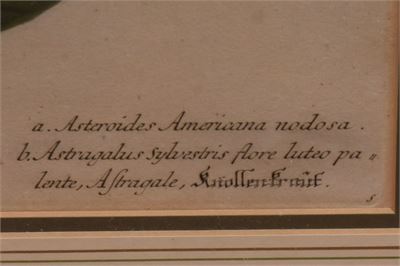 a. Asteroides Americana nodosa.
b. Astragalus Sylvestris flore luteo pa„
lente, Aſtragale, Knollenkraut.
s